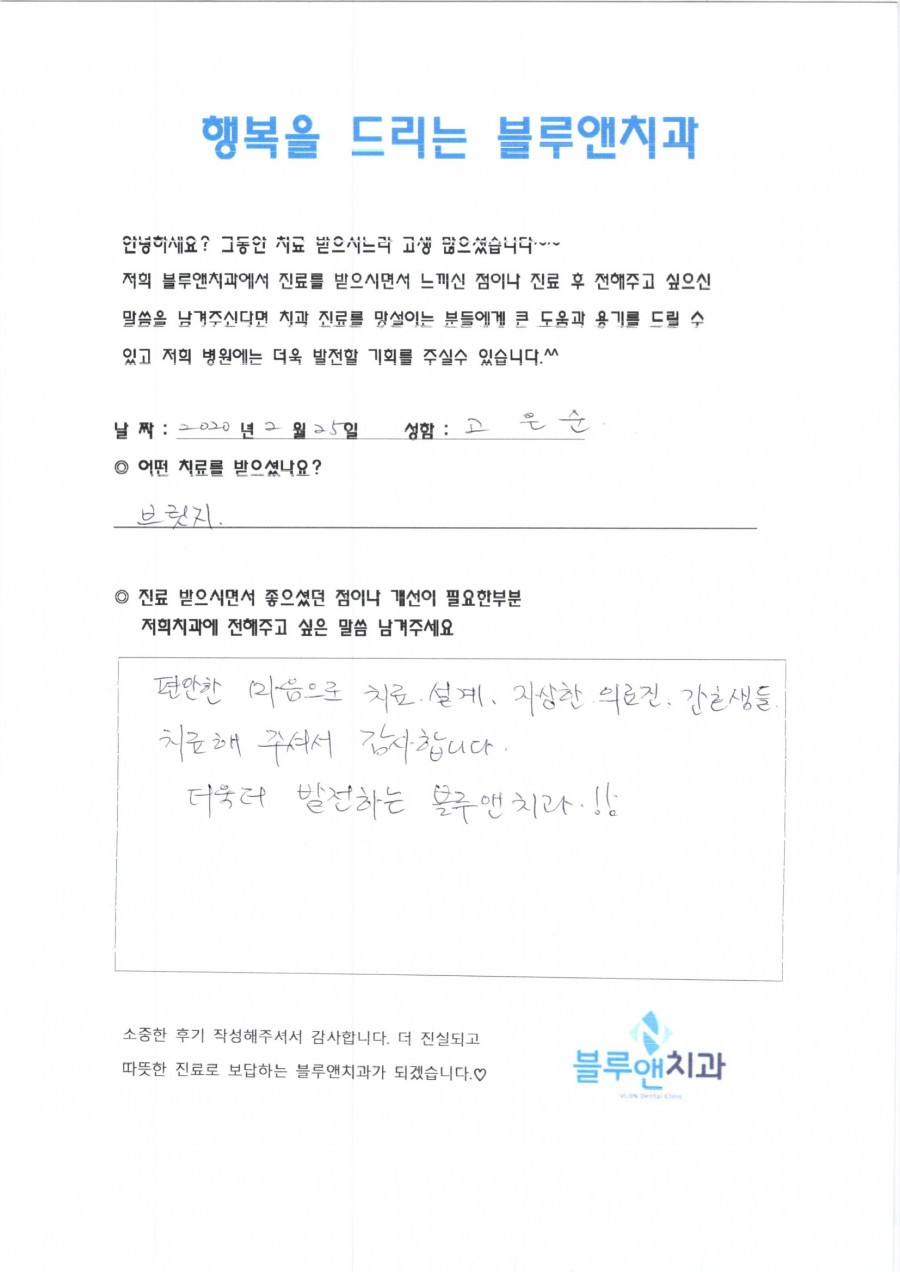 행복을 드리는 블루앤치과
안녕하세요? 그동안 치료 받으시느라 고생 많으셨습니다~~
저희 블루앤치과에서 진료를 받으시면서 느끼신 점이나 진료 후 전해주고 싶으신
말씀을 남겨주신다면 치과 진료를 망설이는 분들에게 큰 도움과 용기를 드릴 수
있고 저희 병원에는 더욱 발전할 기회를 주실수 있습니다.^^
날 짜 : 2020 년 2 월 25일 성함 : 고 은 순
◎ 어떤 치료를 받으셨나요?
브릿지.
◎ 진료 받으시면서 좋으셨던 점이나 개선이 필요한부분
저희치과에 전해주고 싶은 말씀 남겨주세요
편안한 마음으로 치료.설계、자상한 의료진. 간호생들
치료해 주셔서 감사합니다.
더욱더 발전하는 블루앤치과.!!
소중한 후기 작성해주셔서 감사합니다. 더 진실되고
따뜻한 진료로 보답하는 블루앤치과가 되겠습니다.♡
블루앤치과